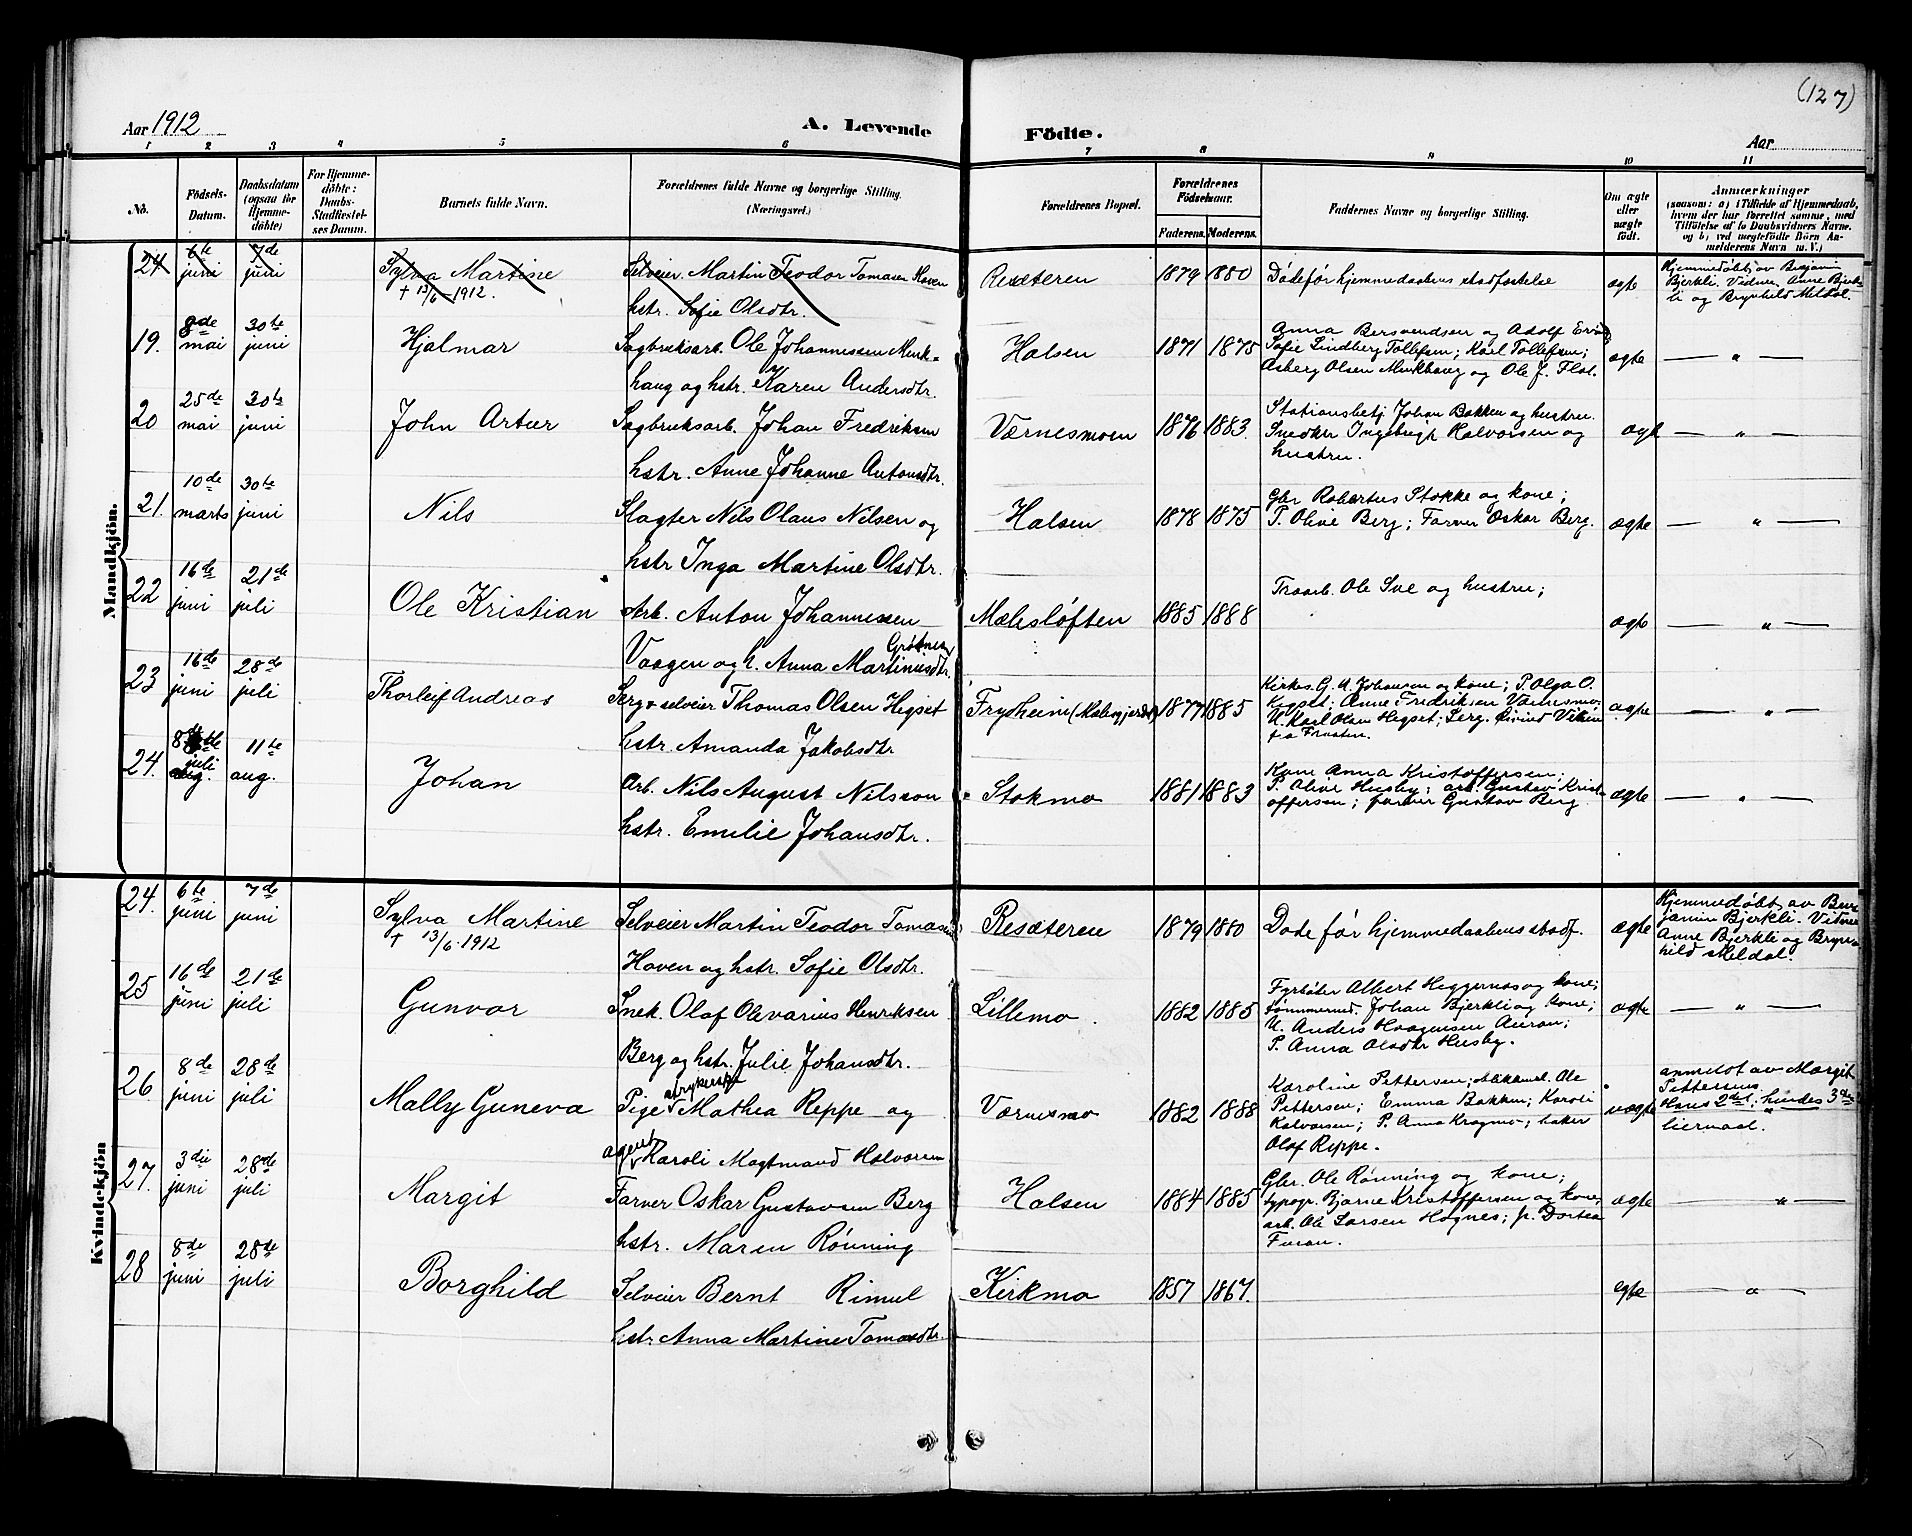 (127)
Aar 1912
A. Levende Födte.
Aar
1 2 3 4 5 6 7 8 9 10 11
No.
Födsels-Datum.
Daabsdatum (ogsaa for Hjemme-döbte)
For Hjemme-döbte: Daabs-Stadfæstel-ses Datum.
Barnets fulde Navn.
Forældrenes fulde Navne og borgerlige Stilling. (Næringsvei.)
Forældrenes Bopæl.
Forældrenes Födselsaar.
Faderens. Moderens.
Faddernes Navne og borgerlige Stilling.
Om ægte eller uægte födt.
Anmærkninger
(saasom: a) i Tilfælde af Hjemmedaab, hvem der har forrettet samme, med Tilföielse af to Daabsvidners Navne. og b) ved uægtefödte Börn Anmelderens Navn m. V.)
Mandkjön.
24 6te juni 7de juni Sylva Martine † 13/6 1912. Selveier Martin Teodor Tomasen Hoven
hstr. Sofie Olsdtr. Resæteren 1879 1880 Døde før hjemmedaabens stadfæstelse ægte Hjemmedøbt av Benjamin
Bjerkli. Vidner Anne Bjerk-
li og Brynhild Meldal.
19. 8de mai 30te juni Hjalmar Sagbruksarb. Ole Johannessen Munk-
haug og hstr. Karen Andersdtr. Halsen 1871 1875 Anna Bersvendsen og Adolf
Sofie Lindberg Tollefsen; Karl Tollefsen;
Asberg Olsen Munkhaug og Ole J. Flot. ægte — " —
20 25de mai 30te juni John Artur Sagbruksarb. Johan Fredriksen
hstr. Anne Johanne Antonsdtr. Værnesmoen 1876 1883 Stationsbetj. Johan Bakken og hustru.
Snedker Ingebrigt Halvorsen og
hustru. ægt — " —
21. 10de marts 30te juni Nils Slagter Nils Olaus Nilsen og
hstr Inga Martine Olsdtr. Halsen 1878 1875 Gbr Robertus Stokke og kone;
P. Olive Berg; Farver Oskar Berg. ægte — " —
22 16de juni 21de juli Ole Kristian Arb. Anton Johannessen
Vaagen og h. Anna Martinusdtr. Grøtnes Mælesløften 1885 1888 Træarb. Ole Sve og hustru; ægte — " —
23 16de juni 28de juli Thorleif Andreas Serg. & selveier Thomas Olsen Hegset
hstr. Amanda Jakobsdtr Frydheim 1877 1885 Kirkes. G. A. Johansen og kone; P. Olga O.
Hegset; Anne Fredriksen Værnesmo.
U. Karl Olsen Hegset; Serg. Eivind Viken
fra Frosten. ægte — " —
24. 8de juli 11te aug. Johan Arb. Nils August Nilsson
hstr. Emilie Johansdtr. Stokmo 1881 1883 Kone Anna Kristoffersen;
P. Olive Husby; arb. Gustav Krist-
offersen; farver Gustav Berg. ægte — " —
Kvindekjön
24. 6te juni 7de juni Sylva Martine † 13/6 1912 Selveier Martin Teodor Tomasen
Hoven og hstr. Sofie Olsdtr. Resæteren 1879 1880 Døde før hjemmedaabens stadf. ægte Hjemmedøbt av Ben-
jamin Bjerkli. Vidner
Anne Bjerkli og Bryn-
hild Meldal.
25 16de juni 21de juli Gunvor Snek. Olaf Olevarius Henriksen
Berg og hstr. Julie Johansdtr. Lillemo 1882 1885 Fyrbøter Albert Heggernas og kone;
tømmermd. Johan Bjerkli og kone;
U. Anders Haagensen Auran;
P. Anna Olsdtr Husby. ægte — " —
26 8de juni 28de juli Mally Guneva Pige strykerske Mathea Reppe og
agent Karoli Magtmand Halvorsen Værnesmo 1882 1888 Karoline Pettersen; Ole
Pettersen; Emma Bakken; Karoli
Halvorsen; P. Anna Kragmo; baker
Olaf Reppe. uægte anmeldt av Margit
Pettersens.
Hans 2det, hendes 3die
leiermaal.
27. 3die juni 28de juli Margit Farver Oskar Gustavsen Berg
hstr. Maren Rønning Halsen 1884 1885 Gbr. Ole Rønning og kone;
typogr. Bjarne Kristoffersen og kone;
arb. Ole Larsen Hognes; p. Dortea
Furan. ægte — " —
28 8de juni 28de juli Borghild Selveier Bernt Rimul
hstr. Anna Martine Tomasdtr. Kirkmo 1857 1867. egte — " —